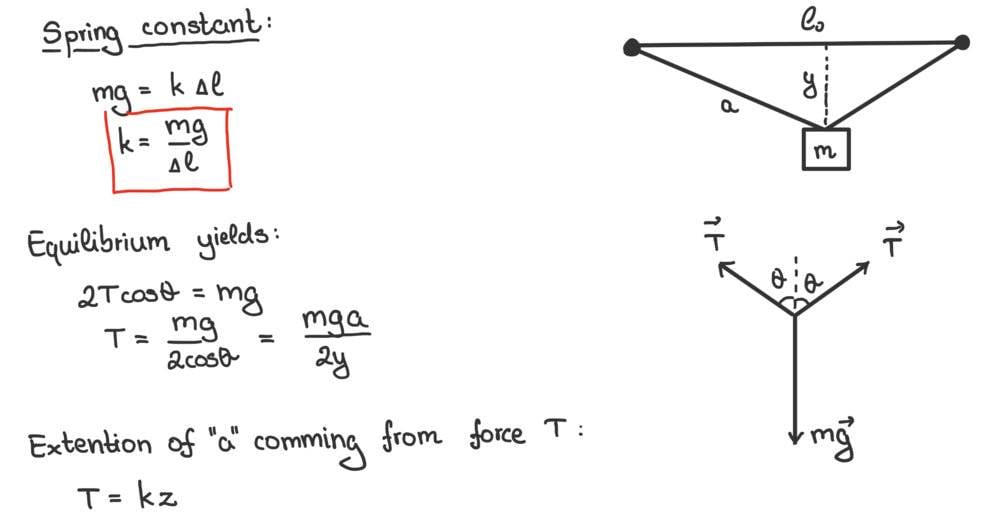 Spring constant:
mg = k Δl
k = mg/Δl
Equilibrium yields:
2Tcosθ = mg
T = mg/2cosθ = mga/2y
Extention of "a" comming from force T:
T = kz
l₀
y
a
m
T⃗
T⃗
θ θ
mg⃗